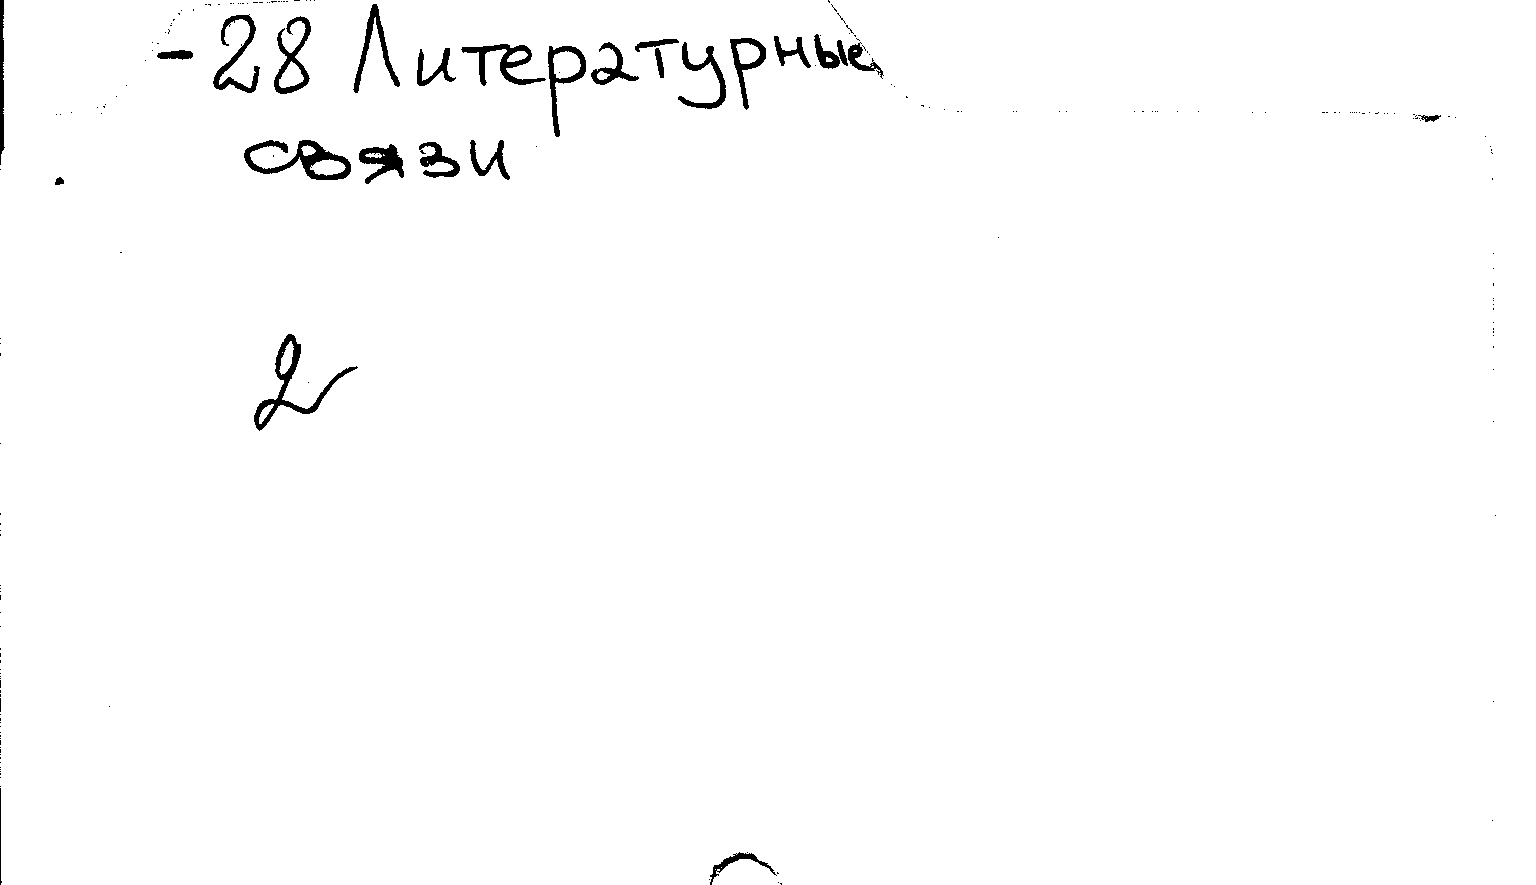 -28 Литературные
связи
2